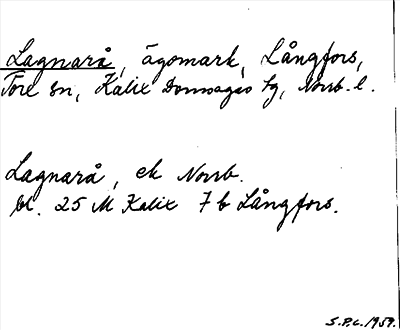 Lagnarå, ägomark, Långfors,
Töre sn, Kalix Domsagas tg, Norrb. l.
Lagnarå, ek Norrb.
bl. 25 M Kalix 7 b Långfors.
S.P.C. 1959.